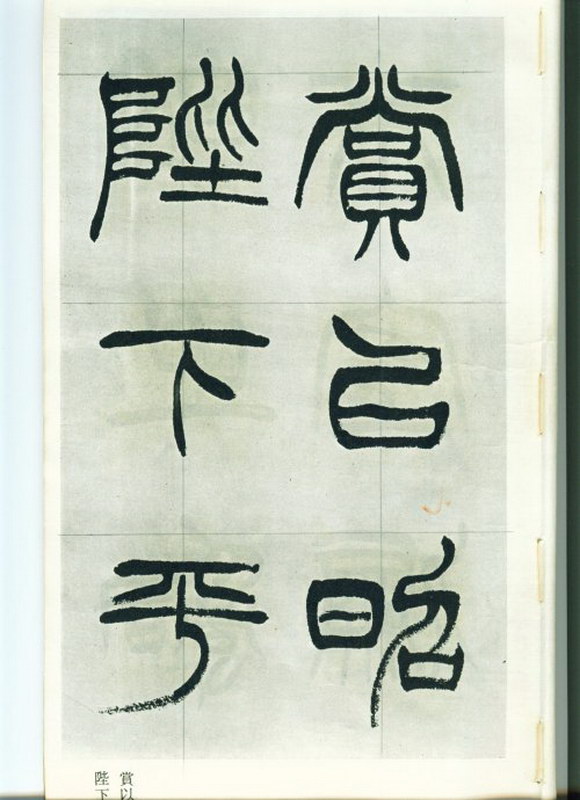 賞㠯昭
陛下平
賞以
陛下